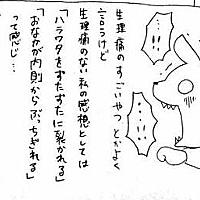 生理痛のすごいやつとかよく
言うけど
生理痛のない私の感想としては
「ハラワタをずたずたに裂かれる」
「おなかが内側からぶっちぎれる」
って感じ…
…!!
…!!